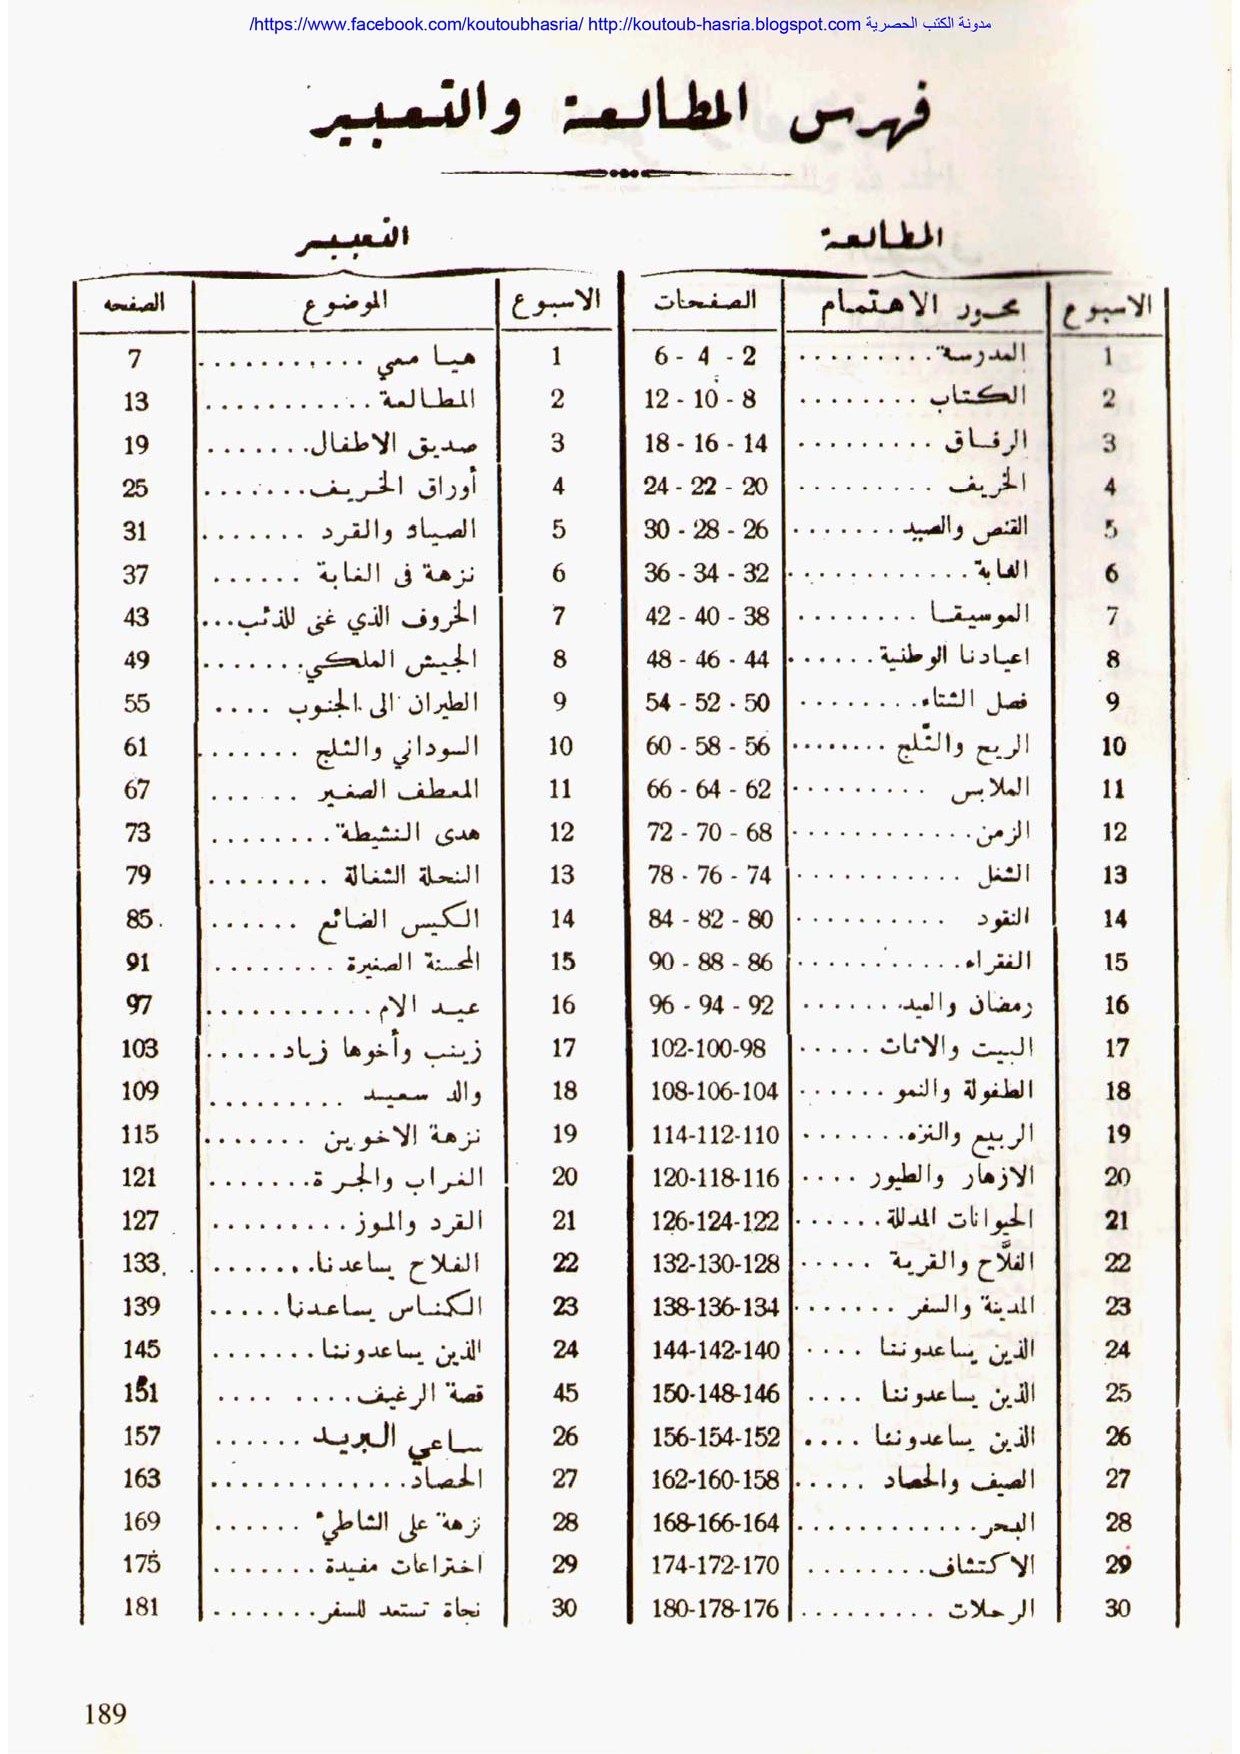 https://www.facebook.com/koutoubhasria/ http://koutoub-hasria.blogspot.com مدونة الكتب الحصرية/
فهرس المطالعة والتعبير
المطالعة التعبير
الاسبوع محور الاهتمام الصفحات الاسبوع الموضوع الصفحه
1 المدرسة......... 2 - 4 - 6 1 هيا معي ........... 7
2 الكتاب ........ 8 - 10 - 12 2 المطالعة ........... 13
3 الرفاق ......... 14 - 16 - 18 3 صديق الاطفال....... 19
4 الخريف ......... 20 - 22 - 24 4 أوراق الخريف....... 25
5 القنص والصيد ....... 26 - 28 - 30 5 الصياد والقرد ....... 31
6 الغابة............ 32 - 34 - 36 6 نزهة في الغابة ...... 37
7 الموسيقا ........ 38 - 40 - 42 7 الخروف الذي غنى للذئب... 43
8 اعيادنا الوطنية ...... 44 - 46 - 48 8 الجيش الملكي....... 49
9 فصل الشتاء........ 50 - 52 - 54 9 الطيران الى الجنوب .... 55
10 الريح والثّلج ........ 56 - 58 - 60 10 السوداني والثلج ....... 61
11 الملابس ......... 62 - 64 - 66 11 المعطف الصغير ...... 67
12 الزمن............ 68 - 70 - 72 12 هدى النشيطة........ 73
13 الشغل ........... 74 - 76 - 78 13 النحلة الشغالة ........ 79
14 النقود .......... 80 - 82 - 84 14 الكيس الضائع ...... 85
15 الفقراء........... 86 - 88 - 90 15 المحسنة الصغيرة ........ 91
16 رمضان والعيد....... 92 - 94 - 96 16 عيد الام............ 97
17 البيت والاثاث ..... 98-100-102 17 زينب وأخوها زياد..... 103
18 الطفولة والنمو ...... 104-106-108 18 والد سعيد ......... 109
19 الربيع والنزه....... 110-112-114 19 نزهة الاخوين ....... 115
20 الازهار والطيور .... 116-118-120 20 الغراب والجرة....... 121
21 الحيوانات المدللة...... 122-124-126 21 القرد والموز......... 127
22 الفلّاح والقرية ..... 128-130-132 22 الفلاح يساعدنا....... 133
23 المدينة والسفر ....... 134-136-138 23 الكناس يساعدنا..... 139
24 الذين يساعدوننا .... 140-142-144 24 الذين يساعدوننا....... 145
25 الذين يساعدوننا .... 146-148-150 45 قصة الرغيف.... .... 151
26 الذين يساعدوننا .... 152-154-156 26 ساعي البريد ...... 157
27 الصيف والحصاد ..... 158-160-162 27 الحصاد............. 163
28 البحر............ 164-166-168 28 نزهة على الشاطئ ...... 169
29 الاكتشاف........ 170-172-174 29 اختراعات مفيدة ....... 175
30 الرحلات ......... 176-178-180 30 نجاة تستعد للسفر........ 181
189